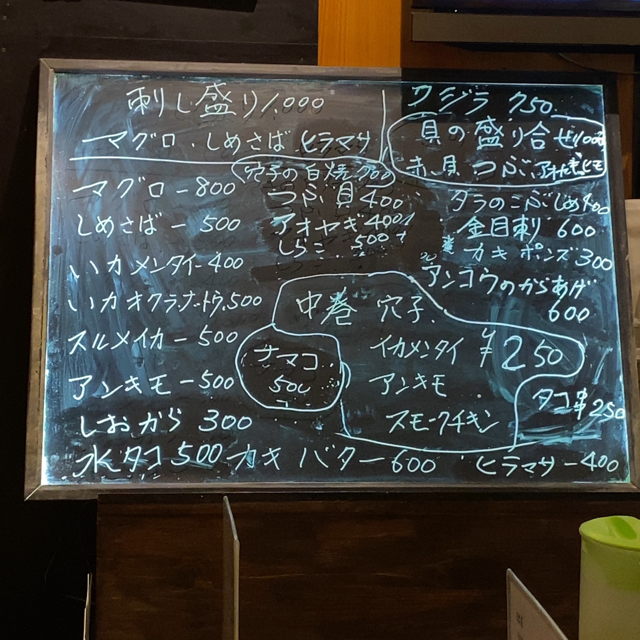 刺し盛り1,000
マグロ・しめさば ヒラマサ
穴子の白焼700
マグロ-800
つぶ貝400
しめさば-500
アオヤギ400
しらこ 500
いかメンタイ-400
いかオクラナットウ500
スルメイカ-500
アンキモ-500
しおから 300
水タコ500 カキバター600 ヒラマサ-400
ナマコ
500
中巻 穴子
イカメンタイ ¥250
アンキモ
スモークチキン
クジラ 750
貝の盛り合せ1000
赤貝つぶ
タラのこぶしめ400
金目刺 600
カキポンズ300
アンコウのからあげ
600
タコ串250